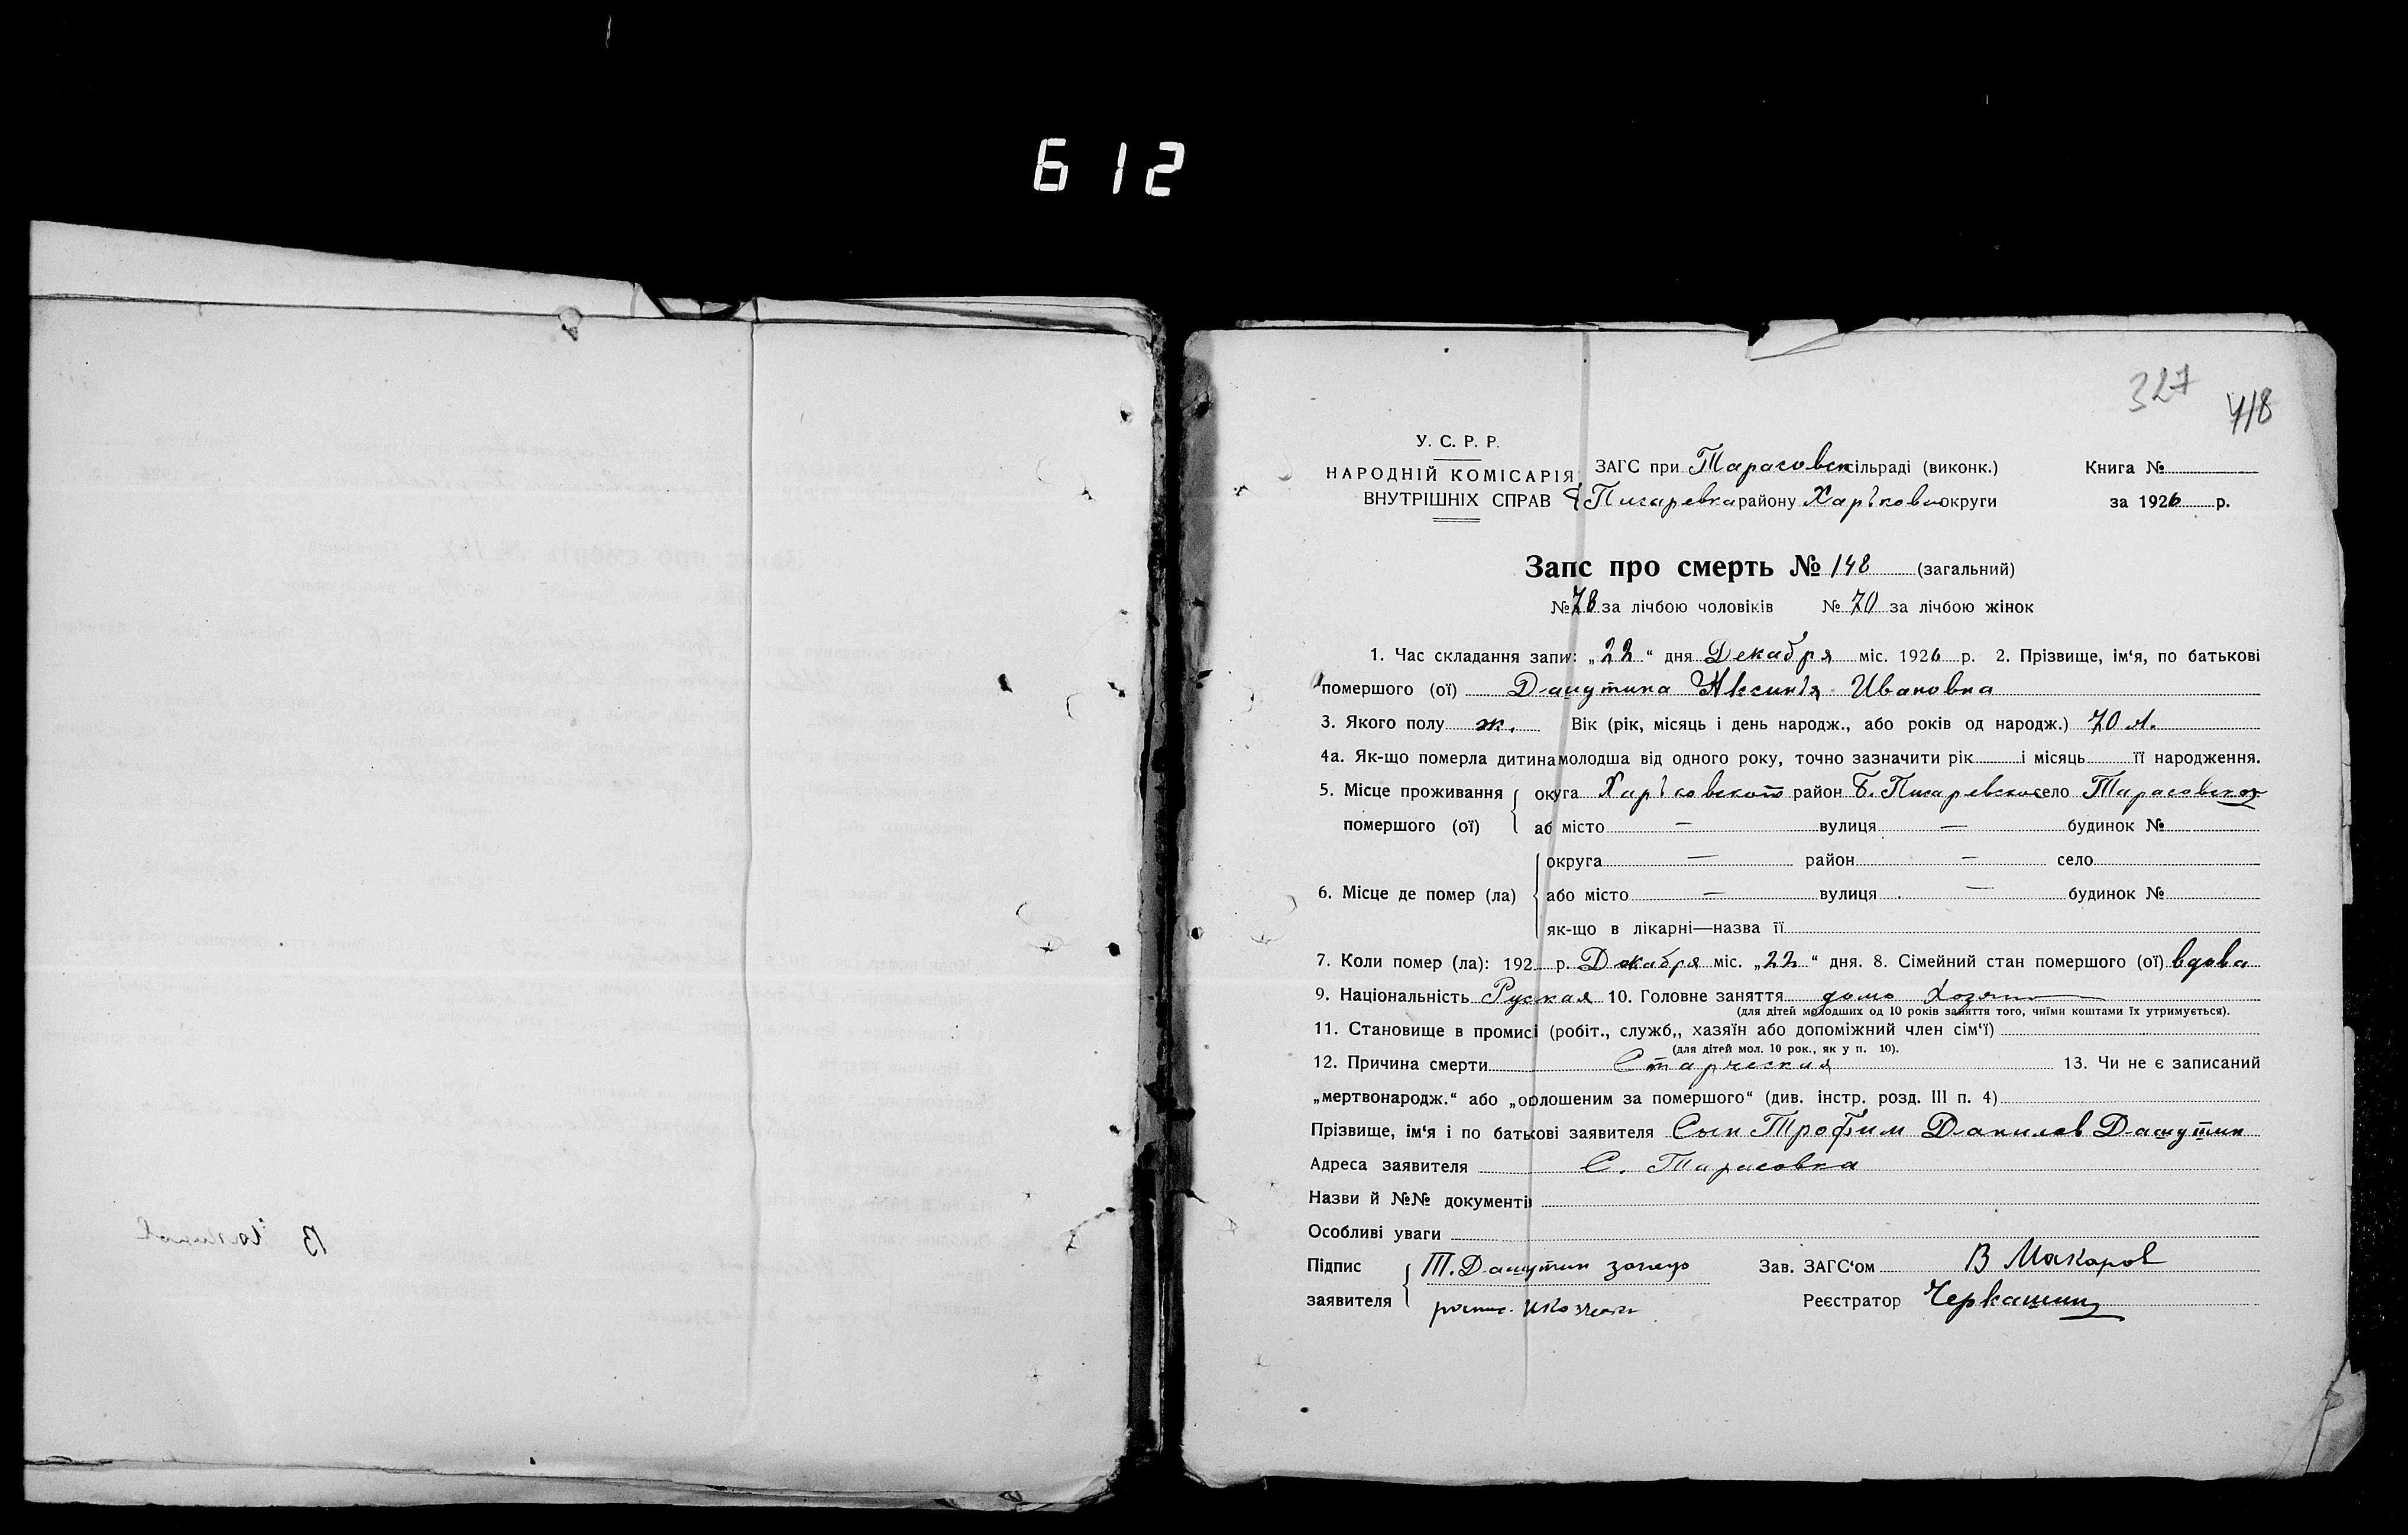 612
327
418
У. С. Р. Р.
НАРОДНІЙ КОМІСАРІЯ
ВНУТРІШНІХ СПРАВ
ЗАГС при Тарасовск сільраді (виконк.)
Писаревка району Харьков округи
Книга №
за 1926 р.
Запс про смерть № 148 (загальний)
№ 78 за лічбою чоловіків № 70 за лічбою жінок
1. Час складання запи: „22“ дня Декабря міс. 1926 р. 2. Прізвище, ім‘я, по батькові
помершого (ої) Дашутина Аксинья Ивановна
3. Якого полу ж. Вік (рік, місяць і день народж., або років од народж.) 70 л.
4а. Як-що померла дитина молодша від одного року, точно зазначити рік і місяць її народження.
5. Місце проживання помершого (ої)
округа Харьковского район Б. Писаревское село Тарасовка
аб місто — вулиця — будинок №
6. Місце де помер (ла)
округа — район — село
або місто — вулиця — будинок №
як-що в лікарні—назва її
7. Коли помер (ла): 192 р. Декабря міс. „22“ дня. 8. Сімейний стан помершого (ої) вдова
9. Національність Руская 10. Головне заняття домо хозяй
(для дітей молодших од 10 років заняття того, чиїми коштами їх утримується).
11. Становище в промисі (робіт., служб,, хазяїн або допоміжний член сім‘ї)
(для дітей мол. 10 рок., як у п. 10).
12. Причина смерти Старческая 13. Чи не є записаний
„мертвонародж.“ або „оолошеним за помершого“ (див. інстр. розд. III п. 4)
Прізвище, ім‘я і по батькові заявителя Сын Трофим Данилов Дашутин
Адреса заявителя С. Тарасовка
Назви й №№ документів
Особливі уваги
Підпис заявителя
Т. Дашутин за него
Зав. ЗАГС‘ом В Макаров
Реєстратор Черкашин